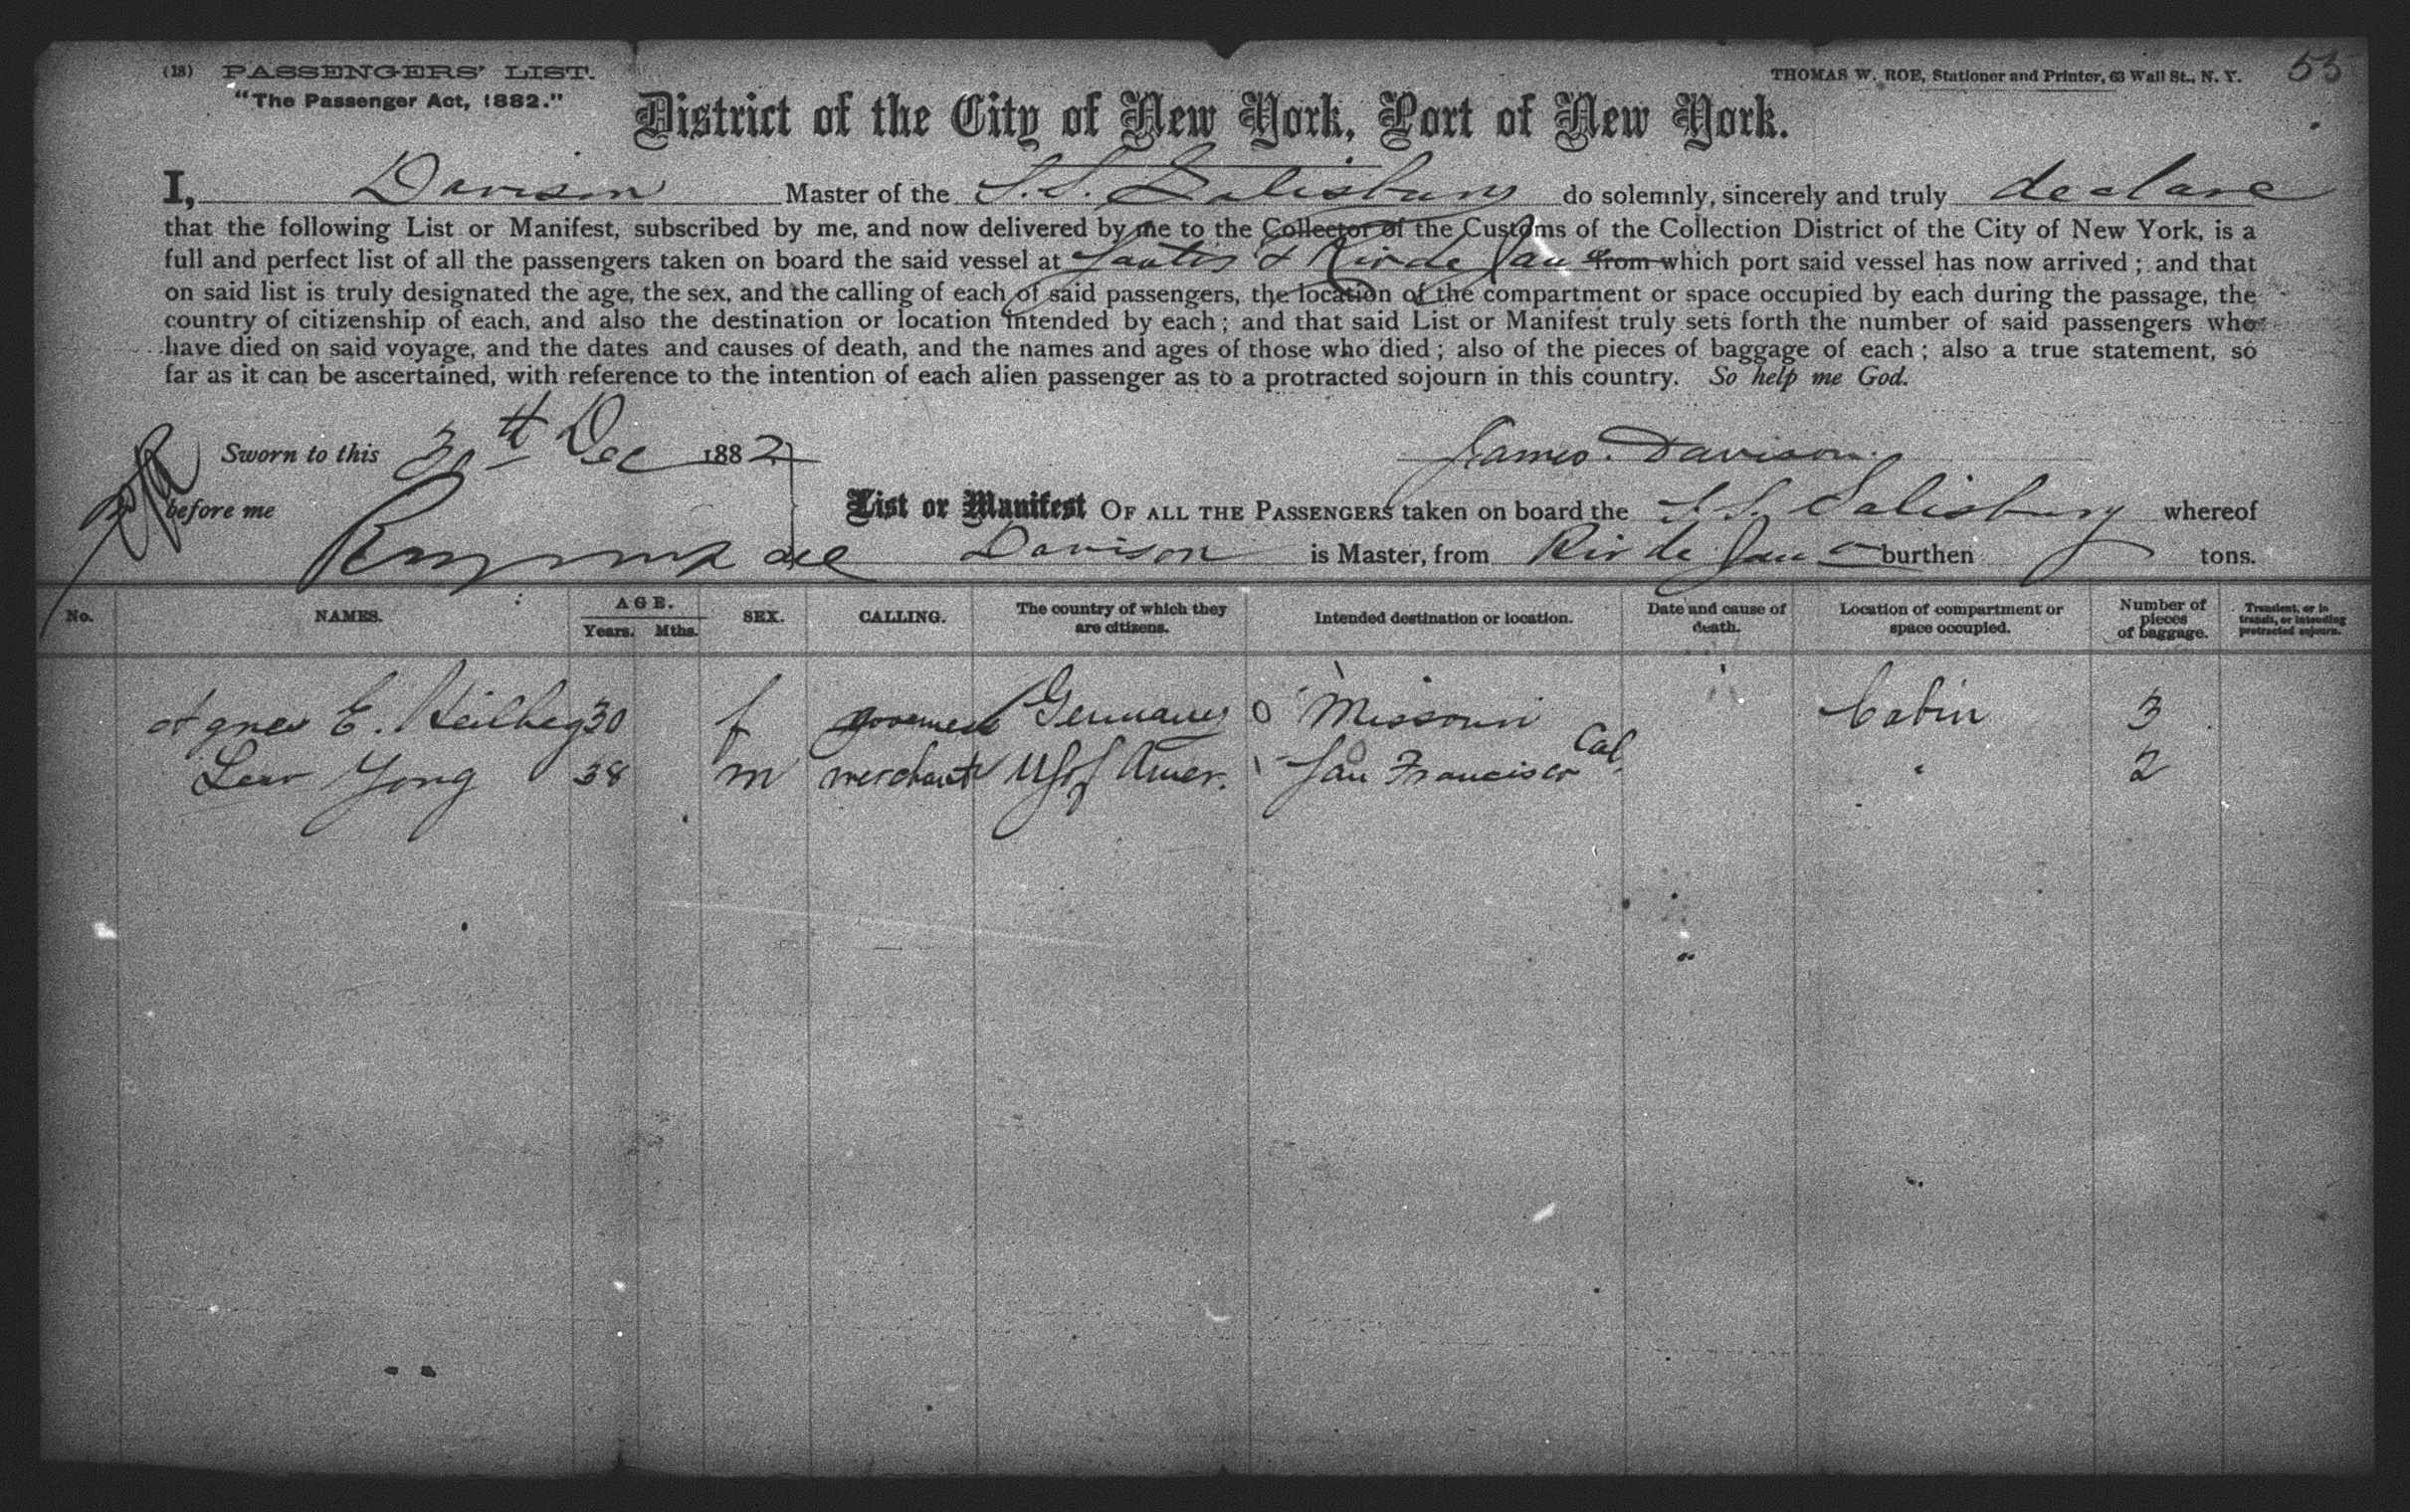 (18) PASSENGERS' LIST.
"The Passenger Act, 1882."
THOMAS W. ROE, Stationer and Printer, 63 Wall St., N. Y.
55
District of the City of New York, Port of New York.
I, Davison Master of the S.S. Salisbury do solemnly, sincerely and truly declare
that the following List or Manifest, subscribed by me, and now delivered by me to the Collector of the Customs of the Collection District of the City of New York, is a
full and perfect list of all the passengers taken on board the said vessel at Santos & Rio de Jan from which port said vessel has now arrived; and that
on said list is truly designated the age, the sex, and the calling of each of said passengers, the location of the compartment or space occupied by each during the passage, the
country of citizenship of each, and also the destination or location intended by each; and that said List or Manifest truly sets forth the number of said passengers who
have died on said voyage, and the dates and causes of death, and the names and ages of those who died; also of the pieces of baggage of each; also a true statement, so
far as it can be ascertained, with reference to the intention of each alien passenger as to a protracted sojourn in this country. So help me God.
Sworn to this 30th Dec 1882
James Davison
before me
List or Manifest OF ALL THE PASSENGERS taken on board the S.S. Salisbury whereof
Davison is Master, from Rio de Jan burthen tons.
No. NAMES. AGE. Years. Mths. SEX. CALLING. The country of which they are citizens. Intended destination or location. Date and cause of death. Location of compartment or space occupied. Number of pieces of baggage. Transient, or in transit, or intending protracted sojourn.
Agnes E. 30 f governess Germany O Missouri Cabin 3
Yong 38 m merchant US of Amer. San Francisco Cal. " 2